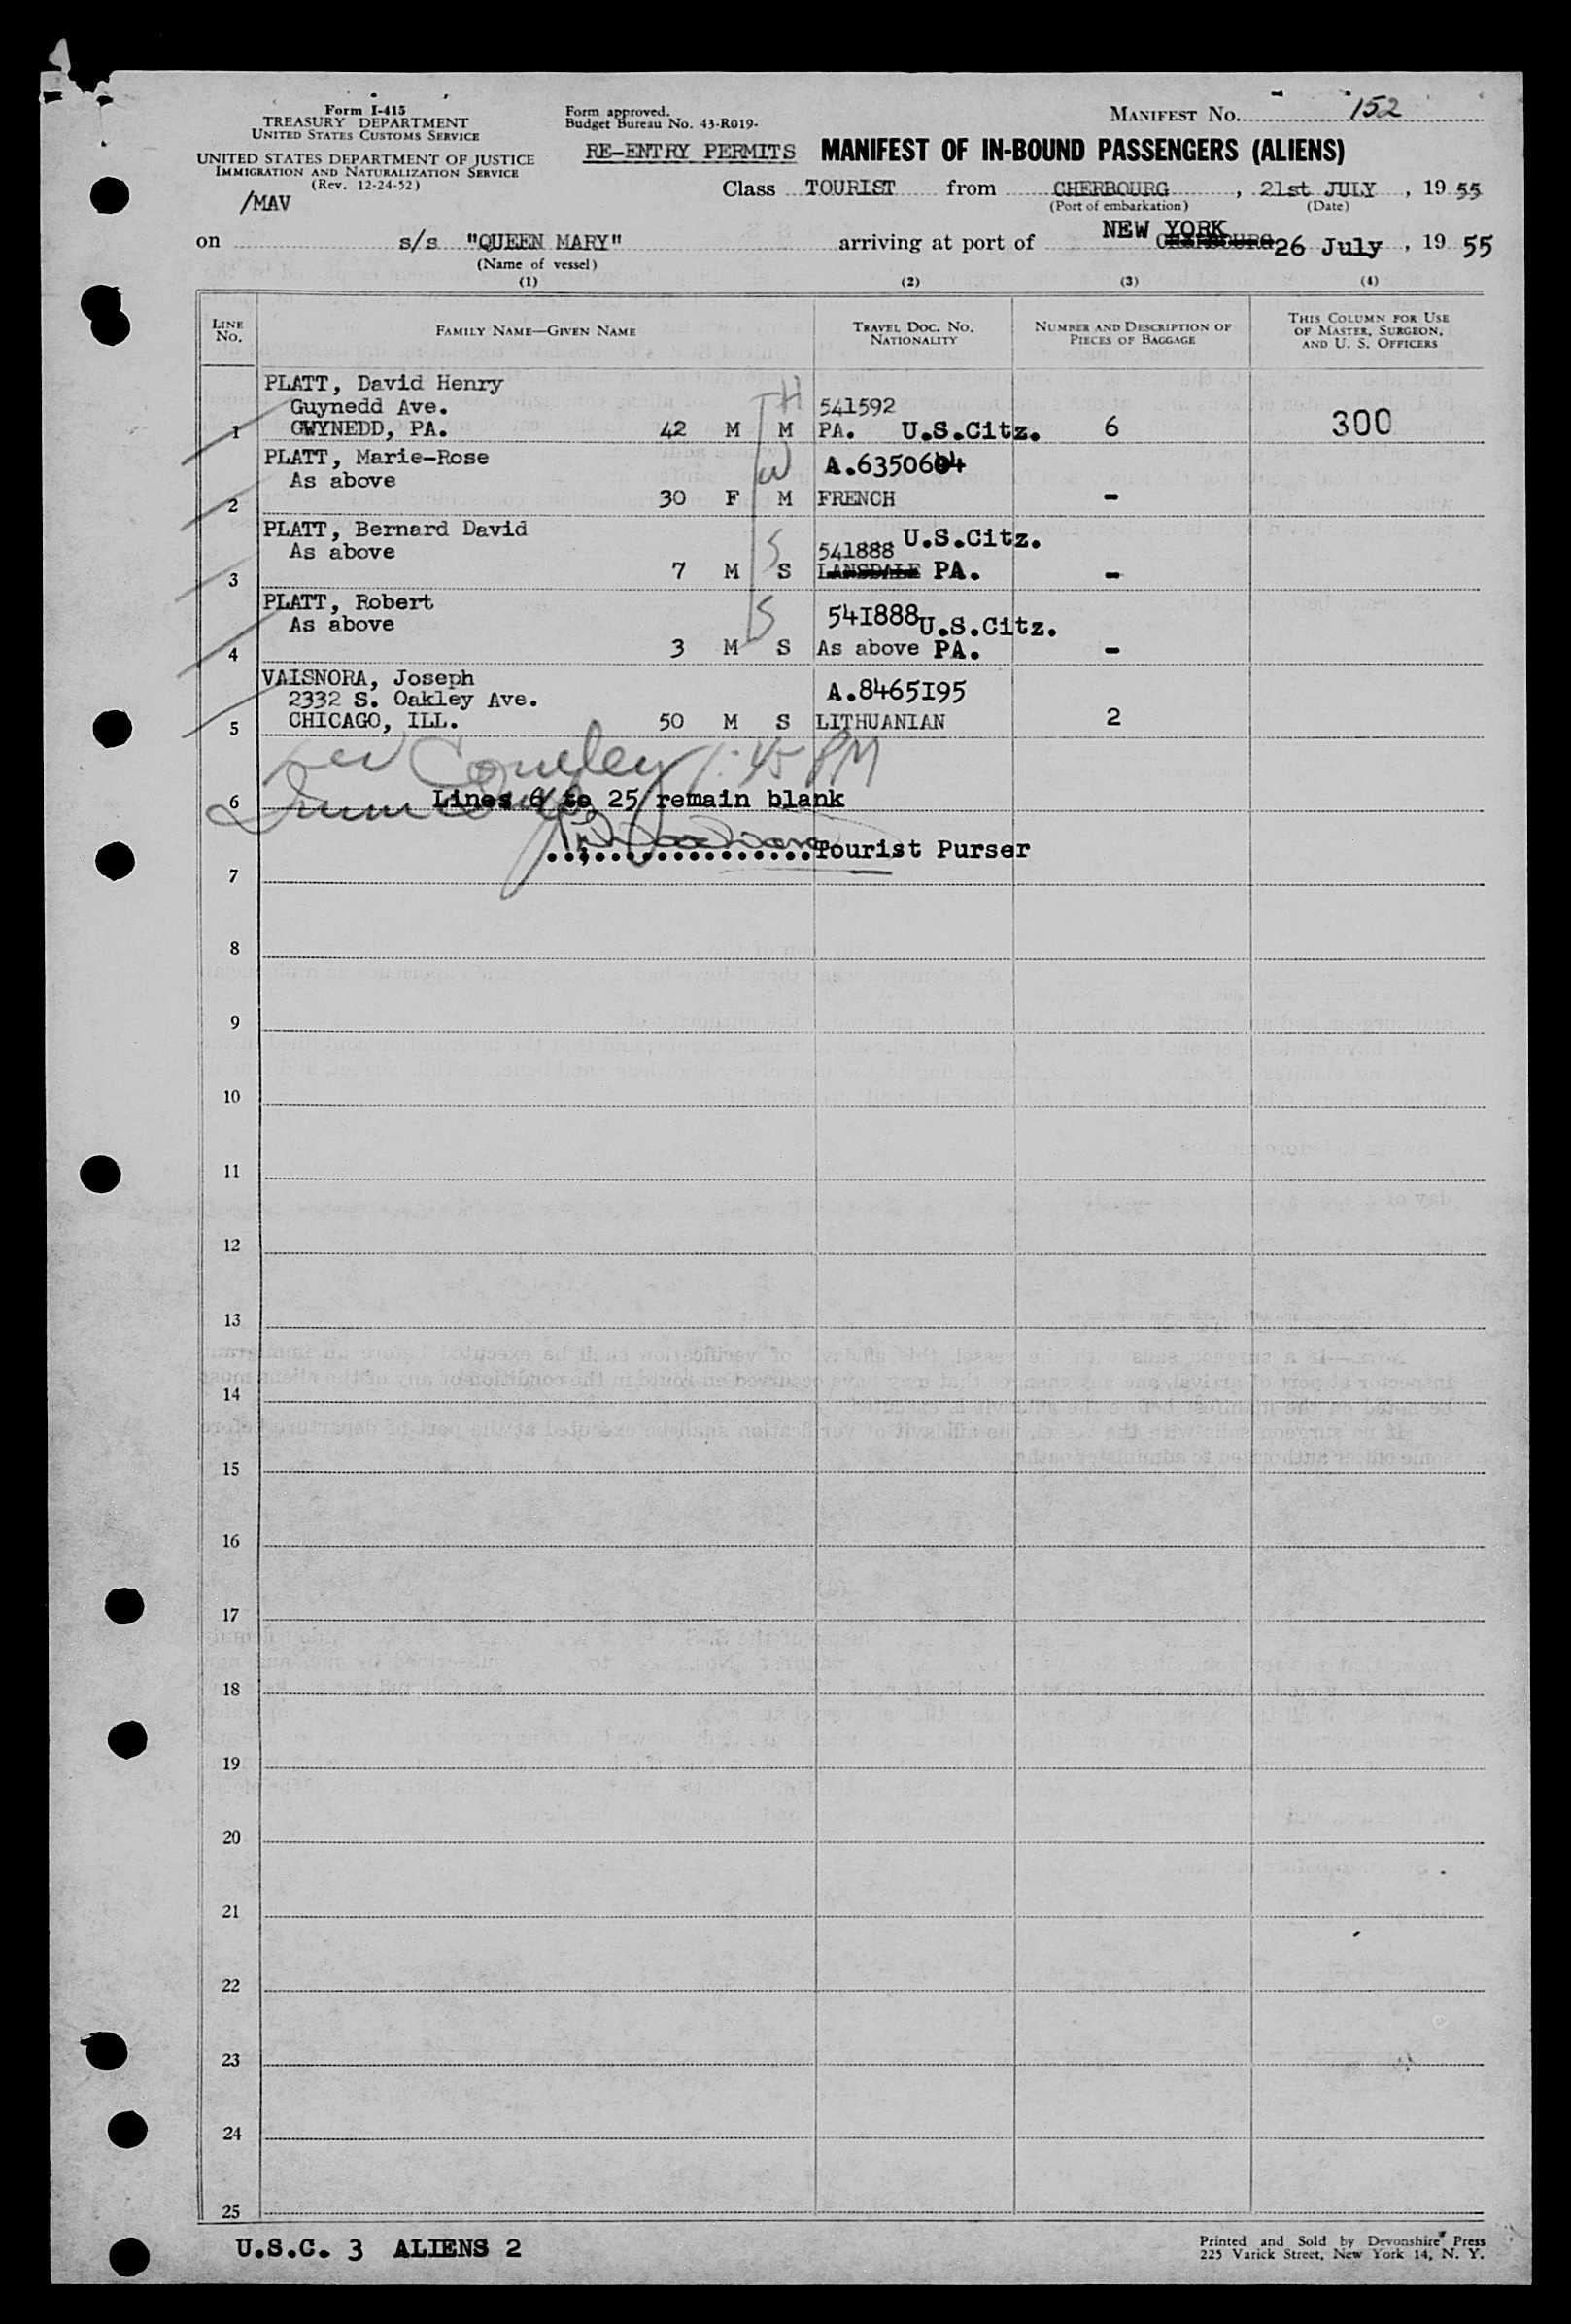 Form I-415
TREASURY DEPARTMENT
UNITED STATES CUSTOMS SERVICE
UNITED STATES DEPARTMENT OF JUSTICE
IMMIGRATION AND NATURALIZATION SERVICE
(Rev. 12-24-52)
/MAV
Form approved.
Budget Bureau No. 43-R019-
MANIFEST No. 152
RE-ENTRY PERMITS MANIFEST OF IN-BOUND PASSENGERS (ALIENS)
Class TOURIST from CHERBOURG, 21st JULY, 19 55
(Port of embarkation) (Date)
on s/s "QUEEN MARY" arriving at port of NEW YORK CHERBOURG 26 July, 19 55
(Name of vessel)
(1) (2) (3) (4)
LINE No. FAMILY NAME—GIVEN NAME TRAVEL DOC. NO. NATIONALITY NUMBER AND DESCRIPTION OF PIECES OF BAGGAGE THIS COLUMN FOR USE OF MASTER, SURGEON, AND U. S. OFFICERS
PLATT, David Henry H
Guynedd Ave. 541592
1 GWYNEDD, PA. 42 M M PA. U.S.Citz. 6 300
PLATT, Marie-Rose W A.6350604
As above
2 30 F M FRENCH -
PLATT, Bernard David S U.S.Citz.
As above 541888
3 7 M S LANSDALE PA. -
PLATT, Robert S 541888 U.S.Citz.
As above
4 3 M S As above PA. -
VAISNORA, Joseph A.8465195
2332 S. Oakley Ave.
5 CHICAGO, ILL. 50 M S LITHUANIAN 2
1:45 PM
6 Lines 6 to 25 remain blank
Tourist Purser
7
8
9
10
11
12
13
14
15
16
17
18
19
20
21
22
23
24
25
U.S.C. 3 ALIENS 2
Printed and Sold by Devonshire Press
225 Varick Street, New York 14, N. Y.